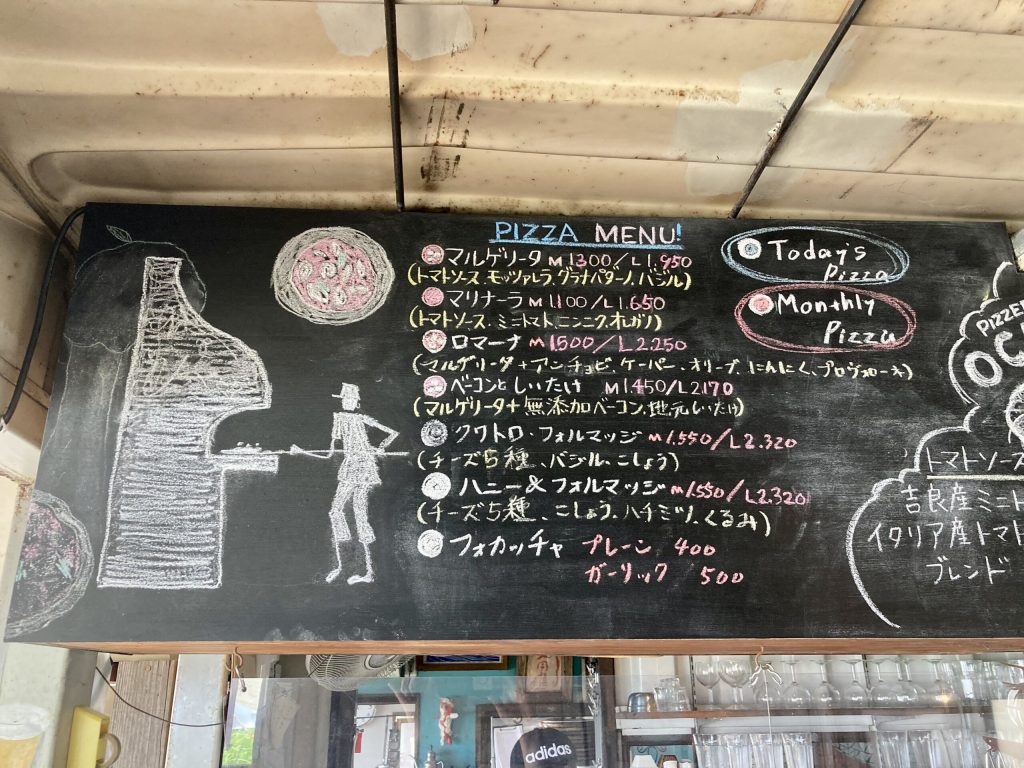 PIZZA MENU!
マルゲリータ M 1300/L 1.950
(トマトソース、モッツァレラ、グラナパダーノ、バジル)
マリナーラ M 1100/L 1.650
(トマトソース、ミニトマト、ニンニク、オレガノ)
ロマーナ M 1500/L 2.250
(マルゲリータ+アンチョビ、ケーパー、オリーブ、にんにく、プロヴォローネ)
ベーコンとしいたけ M 1450/L 2170
(マルゲリータ+無添加ベーコン、地元しいたけ)
クワトロ・フォルマッジ M 1.550/L 2.320
(チーズ5種、バジル、こしょう)
ハニー&フォルマッジ M 1550/L 2.320
(チーズ5種、こしょう、ハチミツ、くるみ)
フォカッチャ プレーン 400
ガーリック 500
Today's
Pizza
Monthly
Pizza
トマトソース
吉良産ミニト
イタリア産トマト
ブレンド
adidas